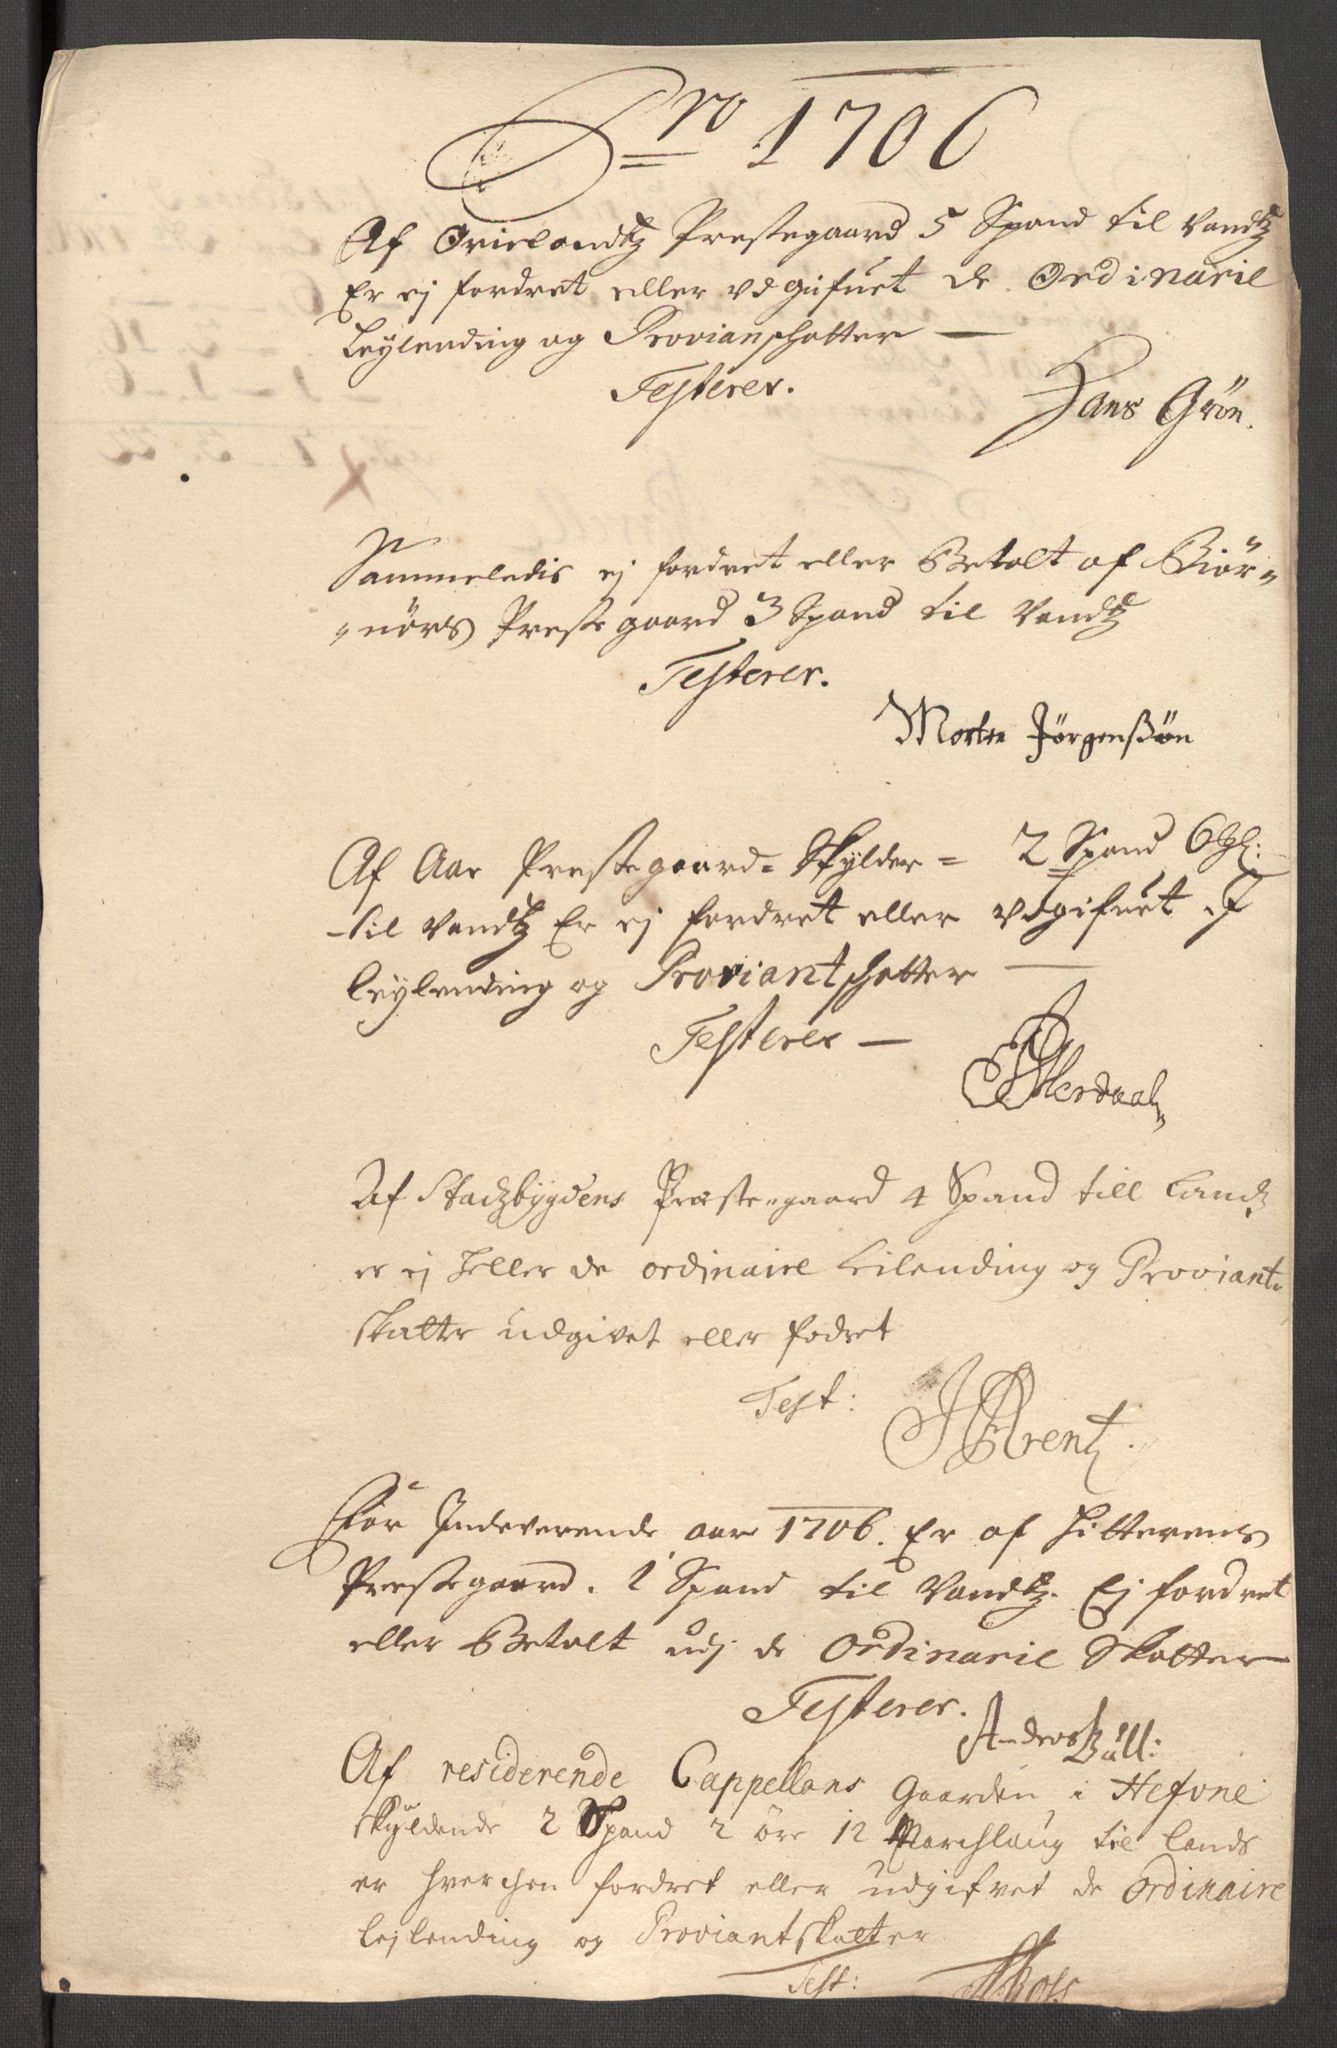 Pro 1706
Af Ørielandtz Prestegaard 5 Spand til Landtz
Er ej fordret eller vdgifuet de Ordinarie
Leylending og Provianschatter —
Testerer.
Hans Grön.
Sammeledis ej fordret eller Betalt af Biör-
-nörs Prestegaard 3 Spand til Landtz
Testerer.
Morten Jörgensßön
Af Aae Prestegaard - Skylder - 2 Spand 6
til Landtz Er ej fordret eller vdgifuet
Leylending og Proviantschatter —
Testerer —
Af Stadzbygdens Præste-gaard 4 Spand till Landz
er ej heller de ordinaire Leilending og Proviant-
skatter udgivet eller fodret
Test:
JArentz.
For Indeverende aar 1706. Er af Hitterens
Prestegaard. 1 Spand til Landtz. Ej fordret
eller Betalt udj de Ordinarie Skatter
Testerer.
Anders Büll:
Af residerende Cappellans Gaarden i Hefone
skyldende 2 Spand 2 öre 12 Marchlaug til Lands
er hverchen fordret eller udgifvet de Ordinaire
Lejlending og Proviantskatter
Test: